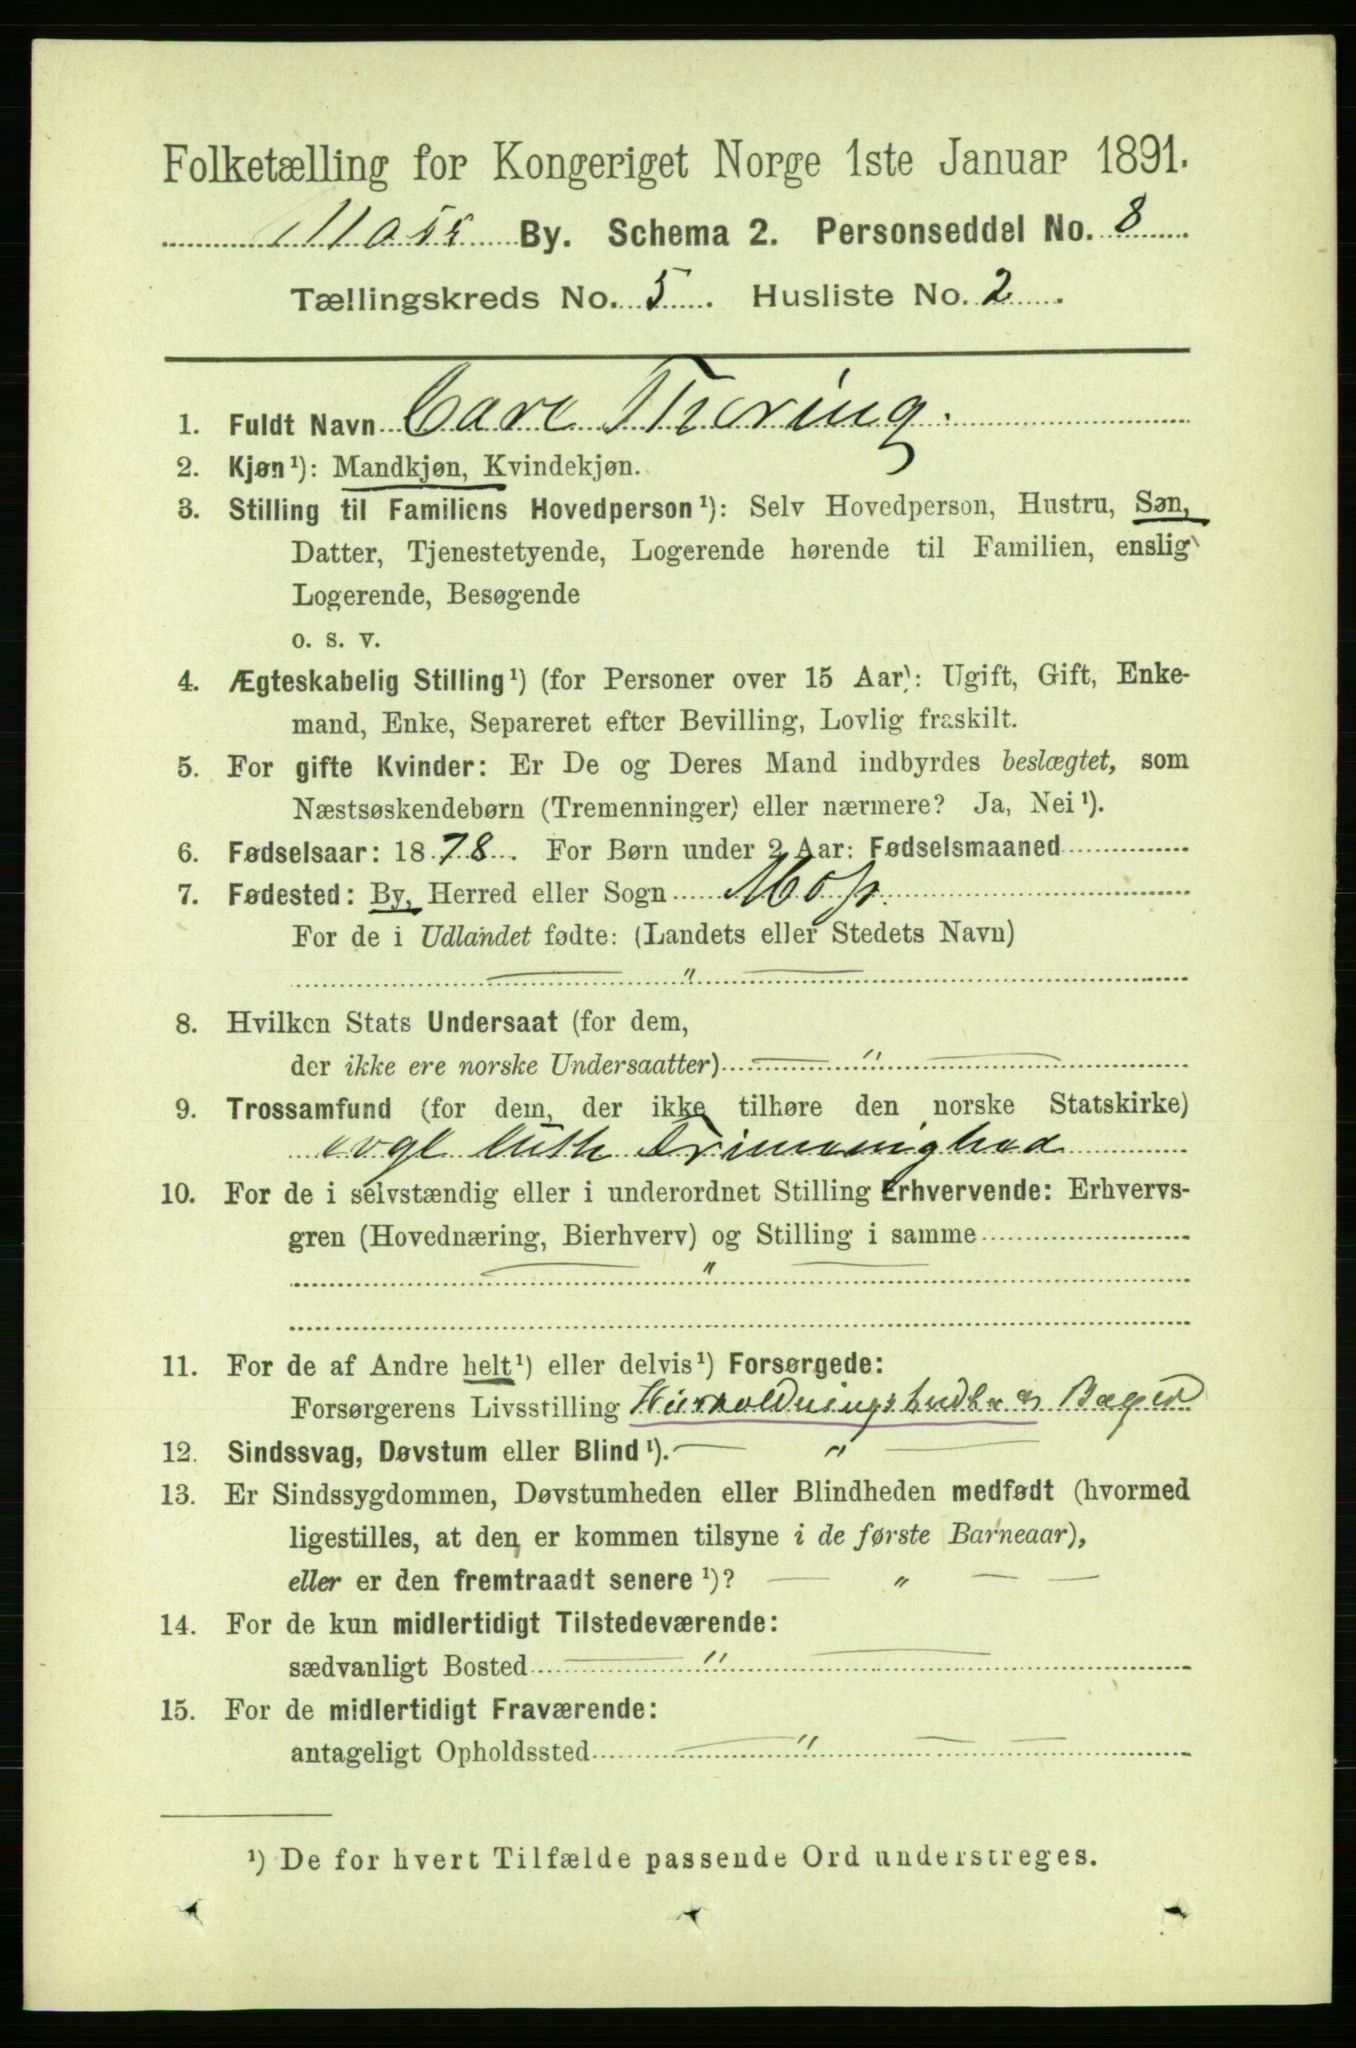 Folketælling for Kongeriget Norge 1ste Januar 1891.
Moss By. Schema 2. Personseddel No. 8
Tællingskreds No. 5. Husliste No. 2.
1. Fuldt Navn Carl Thoring.
2. Kjøn¹): Mandkjøn, Kvindekjøn.
3. Stilling til Familiens Hovedperson¹): Selv Hovedperson, Hustru, Søn,
Datter, Tjenestetyende, Logerende hørende til Familien, enslig
Logerende, Besøgende
o. s. v.
4. Ægteskabelig Stilling¹) (for Personer over 15 Aar): Ugift, Gift, Enke-
mand, Enke, Separeret efter Bevilling, Lovlig fraskilt.
5. For gifte Kvinder: Er De og Deres Mand indbyrdes beslægtet, som
Næstsøskendebørn (Tremenninger) eller nærmere? Ja, Nei¹).
6. Fødselsaar: 1878. For Børn under 2 Aar: Fødselsmaaned
7. Fødested: By, Herred eller Sogn Moss.
For de i Udlandet fødte: (Landets eller Stedets Navn)
— " —
8. Hvilken Stats Undersaat (for dem,
der ikke ere norske Undersaatter) — " —
9. Trossamfund (for dem, der ikke tilhøre den norske Statskirke)
evgl luth Frimenighed
10. For de i selvstændig eller i underordnet Stilling Erhvervende: Erhvervs-
gren (Hovednæring, Bierhverv) og Stilling i samme
— " —
11. For de af Andre helt¹) eller delvis¹) Forsørgede:
Forsørgerens Livsstilling Husholdnings og Bager
12. Sindssvag, Døvstum eller Blind¹). — " —
13. Er Sindssygdommen, Døvstumheden eller Blindheden medfødt (hvormed
ligestilles, at den er kommen tilsyne i de første Barneaar),
eller er den fremtraadt senere¹)? — " — —
14. For de kun midlertidigt Tilstedeværende:
sædvanligt Bosted — " —
15. For de midlertidigt Fraværende:
antageligt Opholdssted — " — —
¹) De for hvert Tilfælde passende Ord understreges.